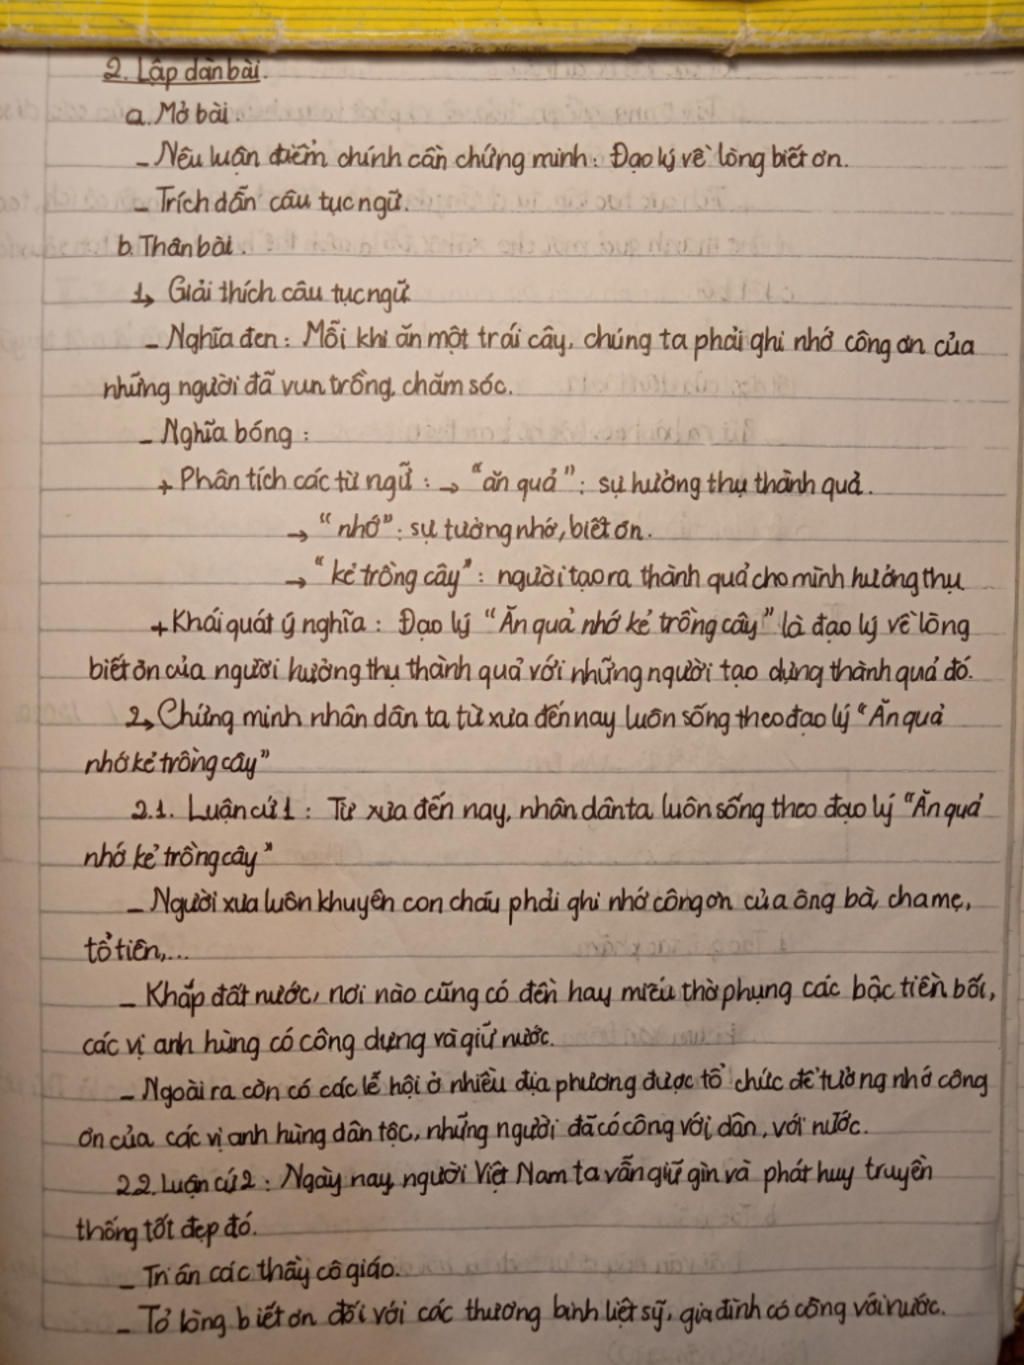 2. Lập dàn bài.
a. Mở bài.
- Nêu luận điểm chính cần chứng minh: Đạo lý về lòng biết ơn.
- Trích dẫn câu tục ngữ.
b. Thân bài.
1, Giải thích câu tục ngữ
- Nghĩa đen: Mỗi khi ăn một trái cây, chúng ta phải ghi nhớ công ơn của
những người đã vun trồng, chăm sóc.
- Nghĩa bóng:
+ Phân tích các từ ngữ: → "ăn quả": sự hưởng thụ thành quả.
→ "nhớ": sự tưởng nhớ, biết ơn.
→ "kẻ trồng cây": người tạo ra thành quả cho mình hưởng thụ
+ Khái quát ý nghĩa: Đạo lý "Ăn quả nhớ kẻ trồng cây" là đạo lý về lòng
biết ơn của người hưởng thụ thành quả với những người tạo dựng thành quả đó.
2, Chứng minh nhân dân ta từ xưa đến nay luôn sống theo đạo lý "Ăn quả
nhớ kẻ trồng cây"
2.1. Luận cứ 1: Từ xưa đến nay, nhân dân ta luôn sống theo đạo lý "Ăn quả
nhớ kẻ trồng cây"
- Người xưa luôn khuyên con cháu phải ghi nhớ công ơn của ông bà, cha mẹ,
tổ tiên,...
- Khắp đất nước, nơi nào cũng có đền hay miếu thờ phụng các bậc tiền bối,
các vị anh hùng có công dựng và giữ nước.
- Ngoài ra còn có các lễ hội ở nhiều địa phương được tổ chức để tưởng nhớ công
ơn của các vị anh hùng dân tộc, những người đã có công với dân, với nước.
2.2. Luận cứ 2: Ngày nay người Việt Nam ta vẫn giữ gìn và phát huy truyền
thống tốt đẹp đó.
- Tri ân các thầy cô giáo.
- Tỏ lòng biết ơn đối với các thương binh liệt sỹ, gia đình có công với nước.